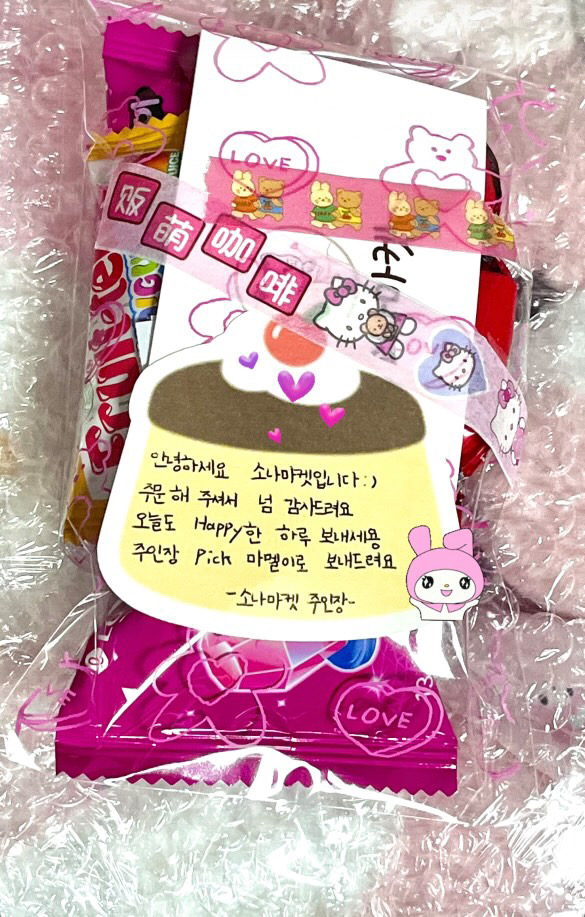 LOVE
贩萌咖啡
안녕하세요 소나마켓입니다:)
주문해 주셔서 넘 감사드려요
오늘도 Happy한 하루 보내세용
주인장 Pick 마멜이로 보내드려요
-소나마켓 주인장-
LOVE